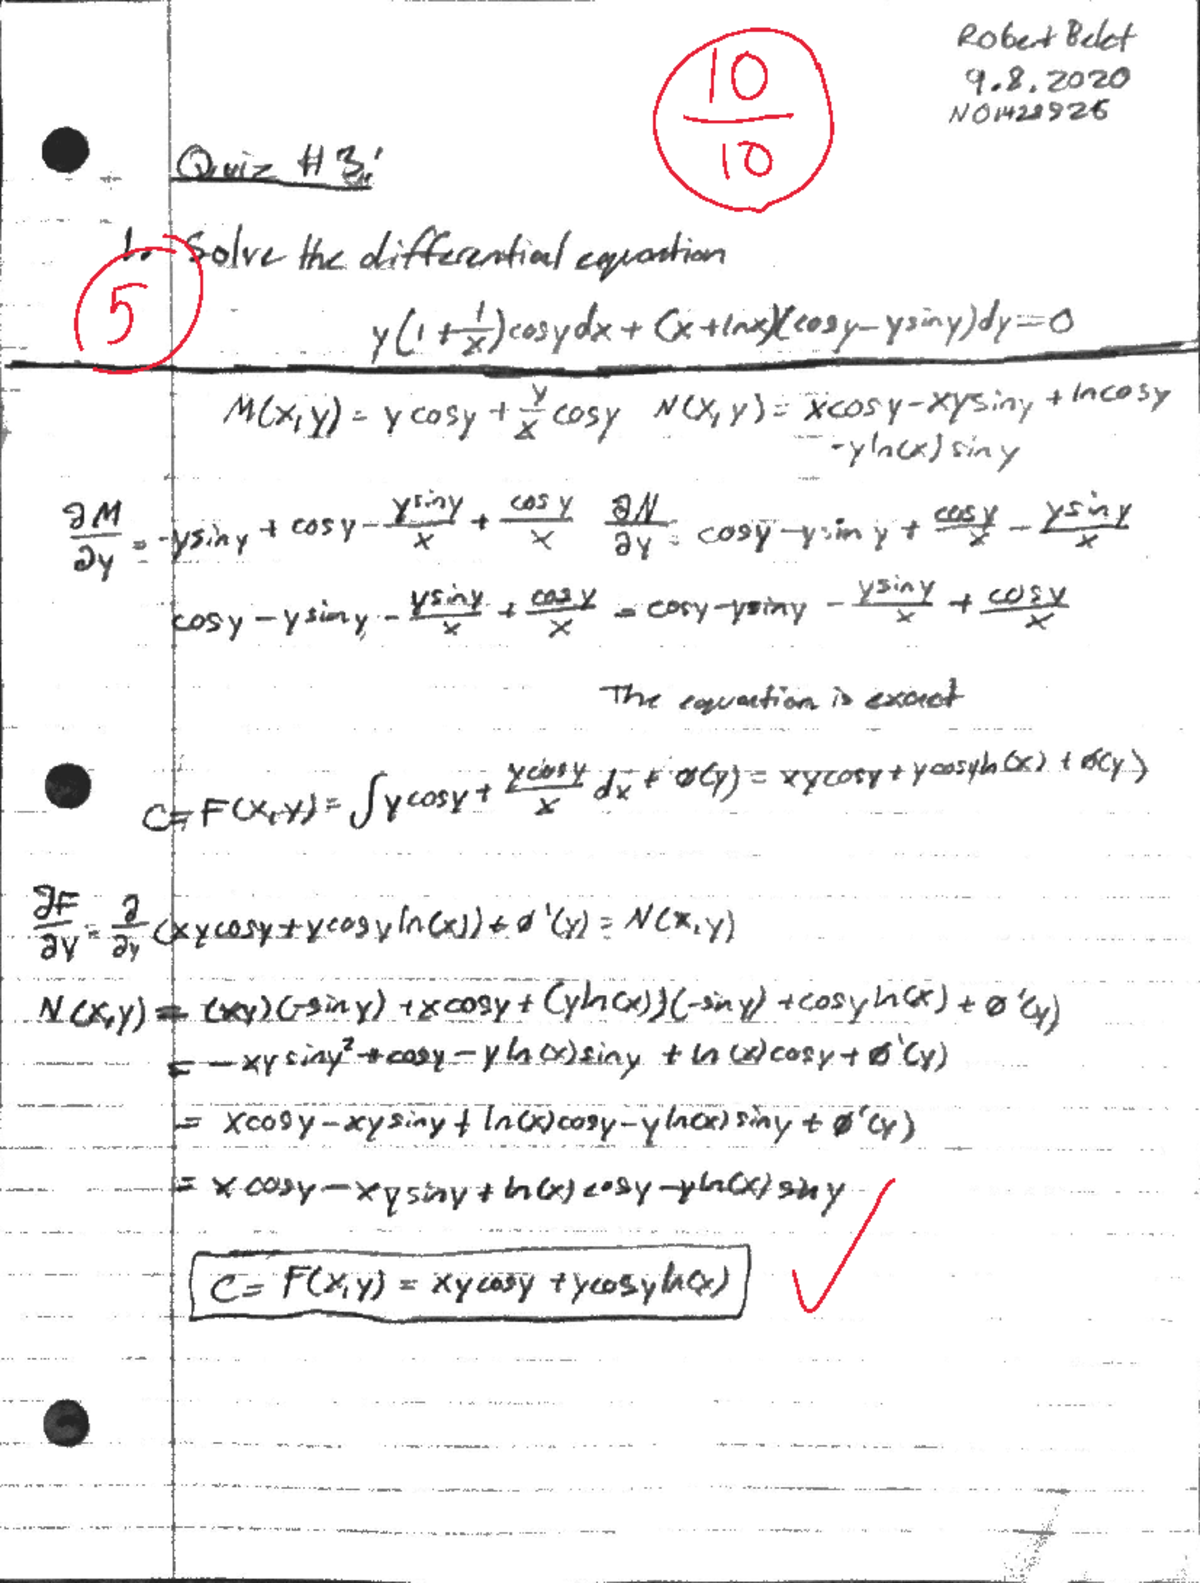 Robert Belet
9.8.2020
N01428926
10
10
Quiz #3:
1. Solve the differential equation
5
y(1+1/x)cosydx + (x+lnx)(cosy-ysiny)dy=0
M(x,y) = ycosy + y/x cosy N(x,y) = xcosy-xysiny + lncosy
-yln(x)siny
∂M/∂y = -ysiny + cosy - ysiny/x + cosy/x ∂N/∂y = cosy-ysiny + cosy/x - ysiny/x
cosy-ysiny - ysiny/x + cosy/x = cosy-ysiny - ysiny/x + cosy/x
The equation is exact
C=F(x,y)=∫ycosy + ycosy/x dx + ø(y) = xycosy + ycosyln(x) + ø(y)
∂F/∂y = ∂/∂y (xycosy+ycosyln(x)) + ø'(y) = N(x,y)
N(x,y) = (xy)(-siny) + xcosy + (yln(x))(-siny) + cosyln(x) + ø'(y)
= -xysiny² + cosy - yln(x)siny + ln(x)cosy + ø'(y)
= xcosy-xysiny + ln(x)cosy-yln(x)siny + ø'(y)
= xcosy-xysiny + ln(x)cosy-yln(x)siny
C= F(x,y) = xycosy + ycosyln(x)